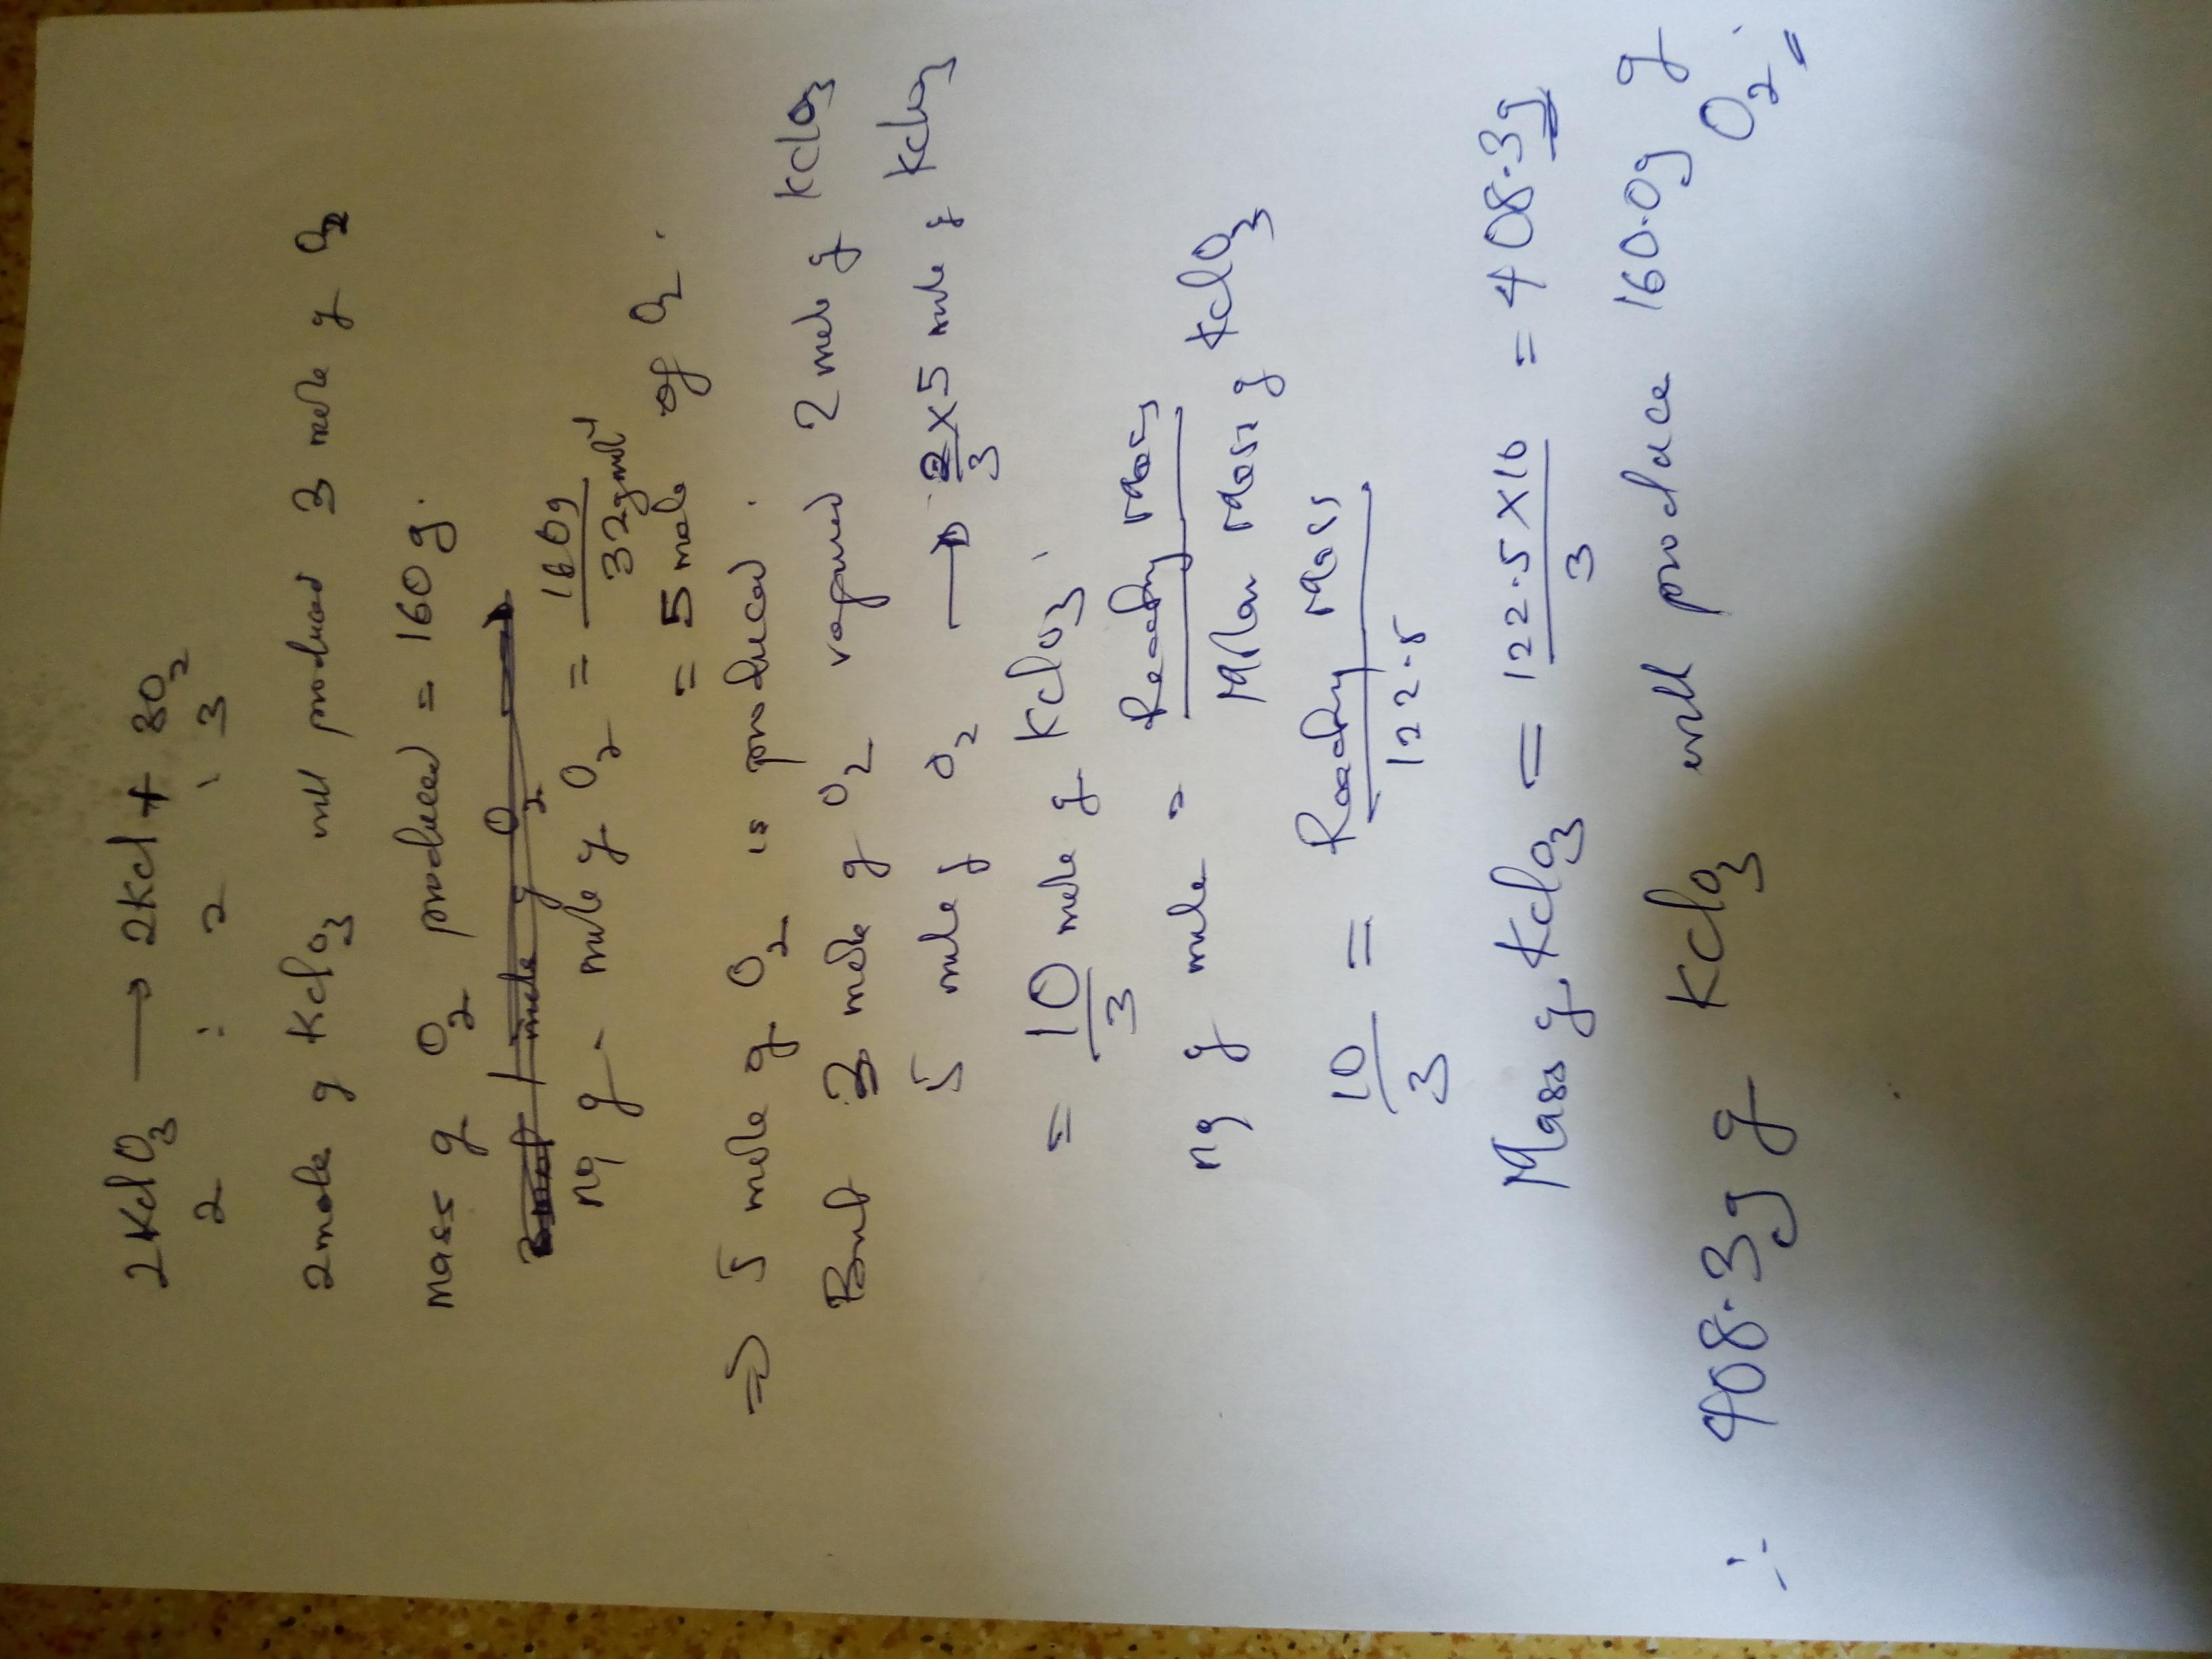 2KClO3 → 2KCl + 3O2
2 : 2 : 3
2mole of KClO3 will produced 3 mole of O2
Mass of O2 produced = 160g.
1 mole of O2
no of mole of O2 = 160g / 32gmol-1
= 5 mole of O2.
⇒ 5 mole of O2 is produced.
But 3 mole of O2 required 2 mole of KClO3
5 mole of O2 → 2/3 × 5 mole of KClO3
= 10/3 mole of KClO3.
no of mole = Reacting Mass / Molar Mass of KClO3
10/3 = Reacting Mass / 122.5
Mass of KClO3 = 122.5 × 10 / 3 = 408.3g
∴ 408.3g of KClO3 will produce 160.0g of O2.